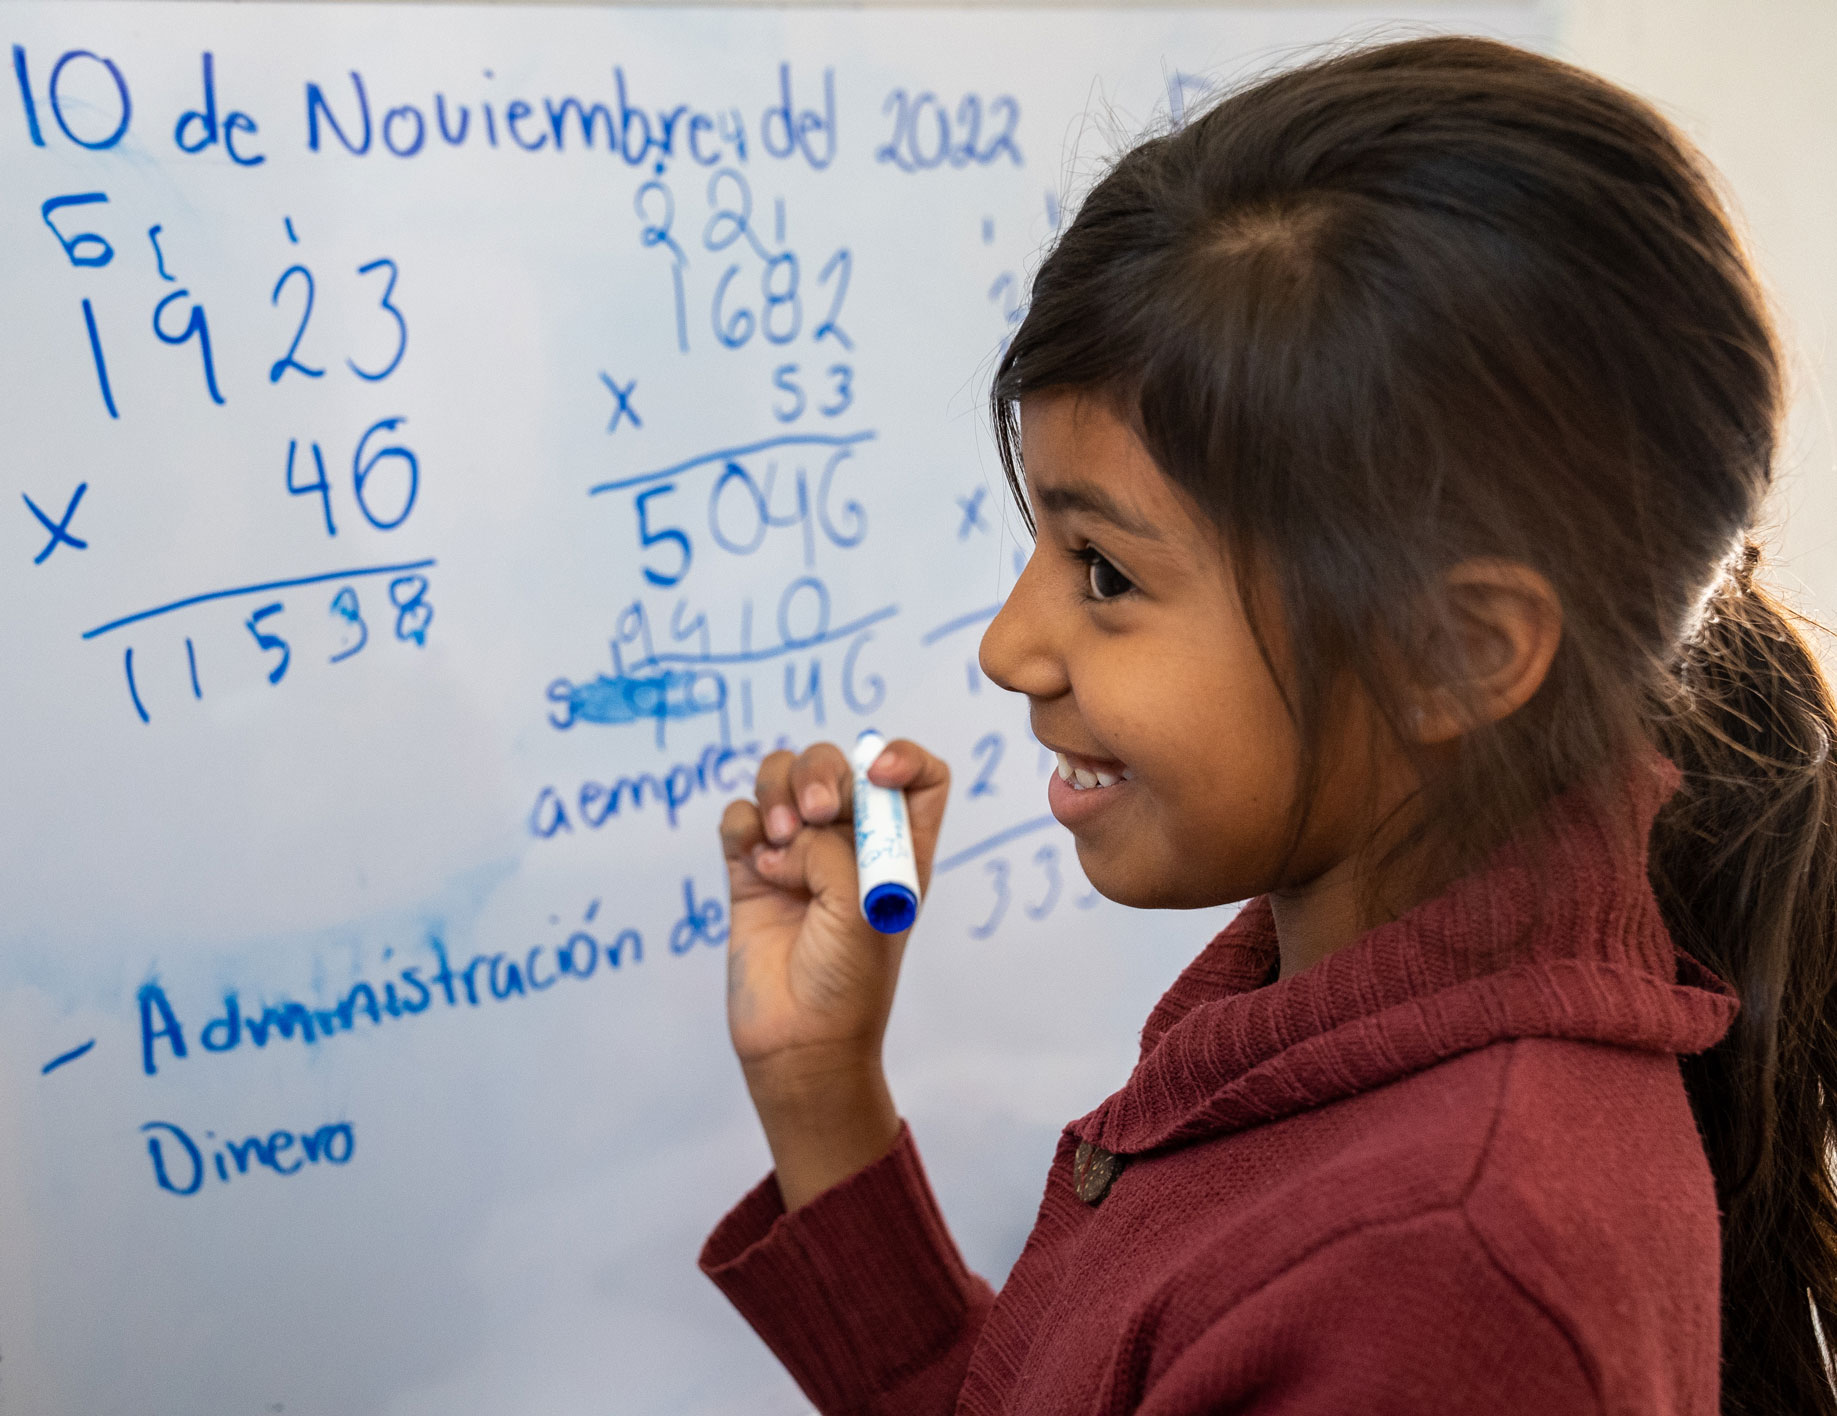 10 de Noviembre, del 2022
5 1 1
1923
x 46
11538
2 2 1
1682
x 53
5046
9410
9146
x
2
33
a empre
- Administración de
Dinero